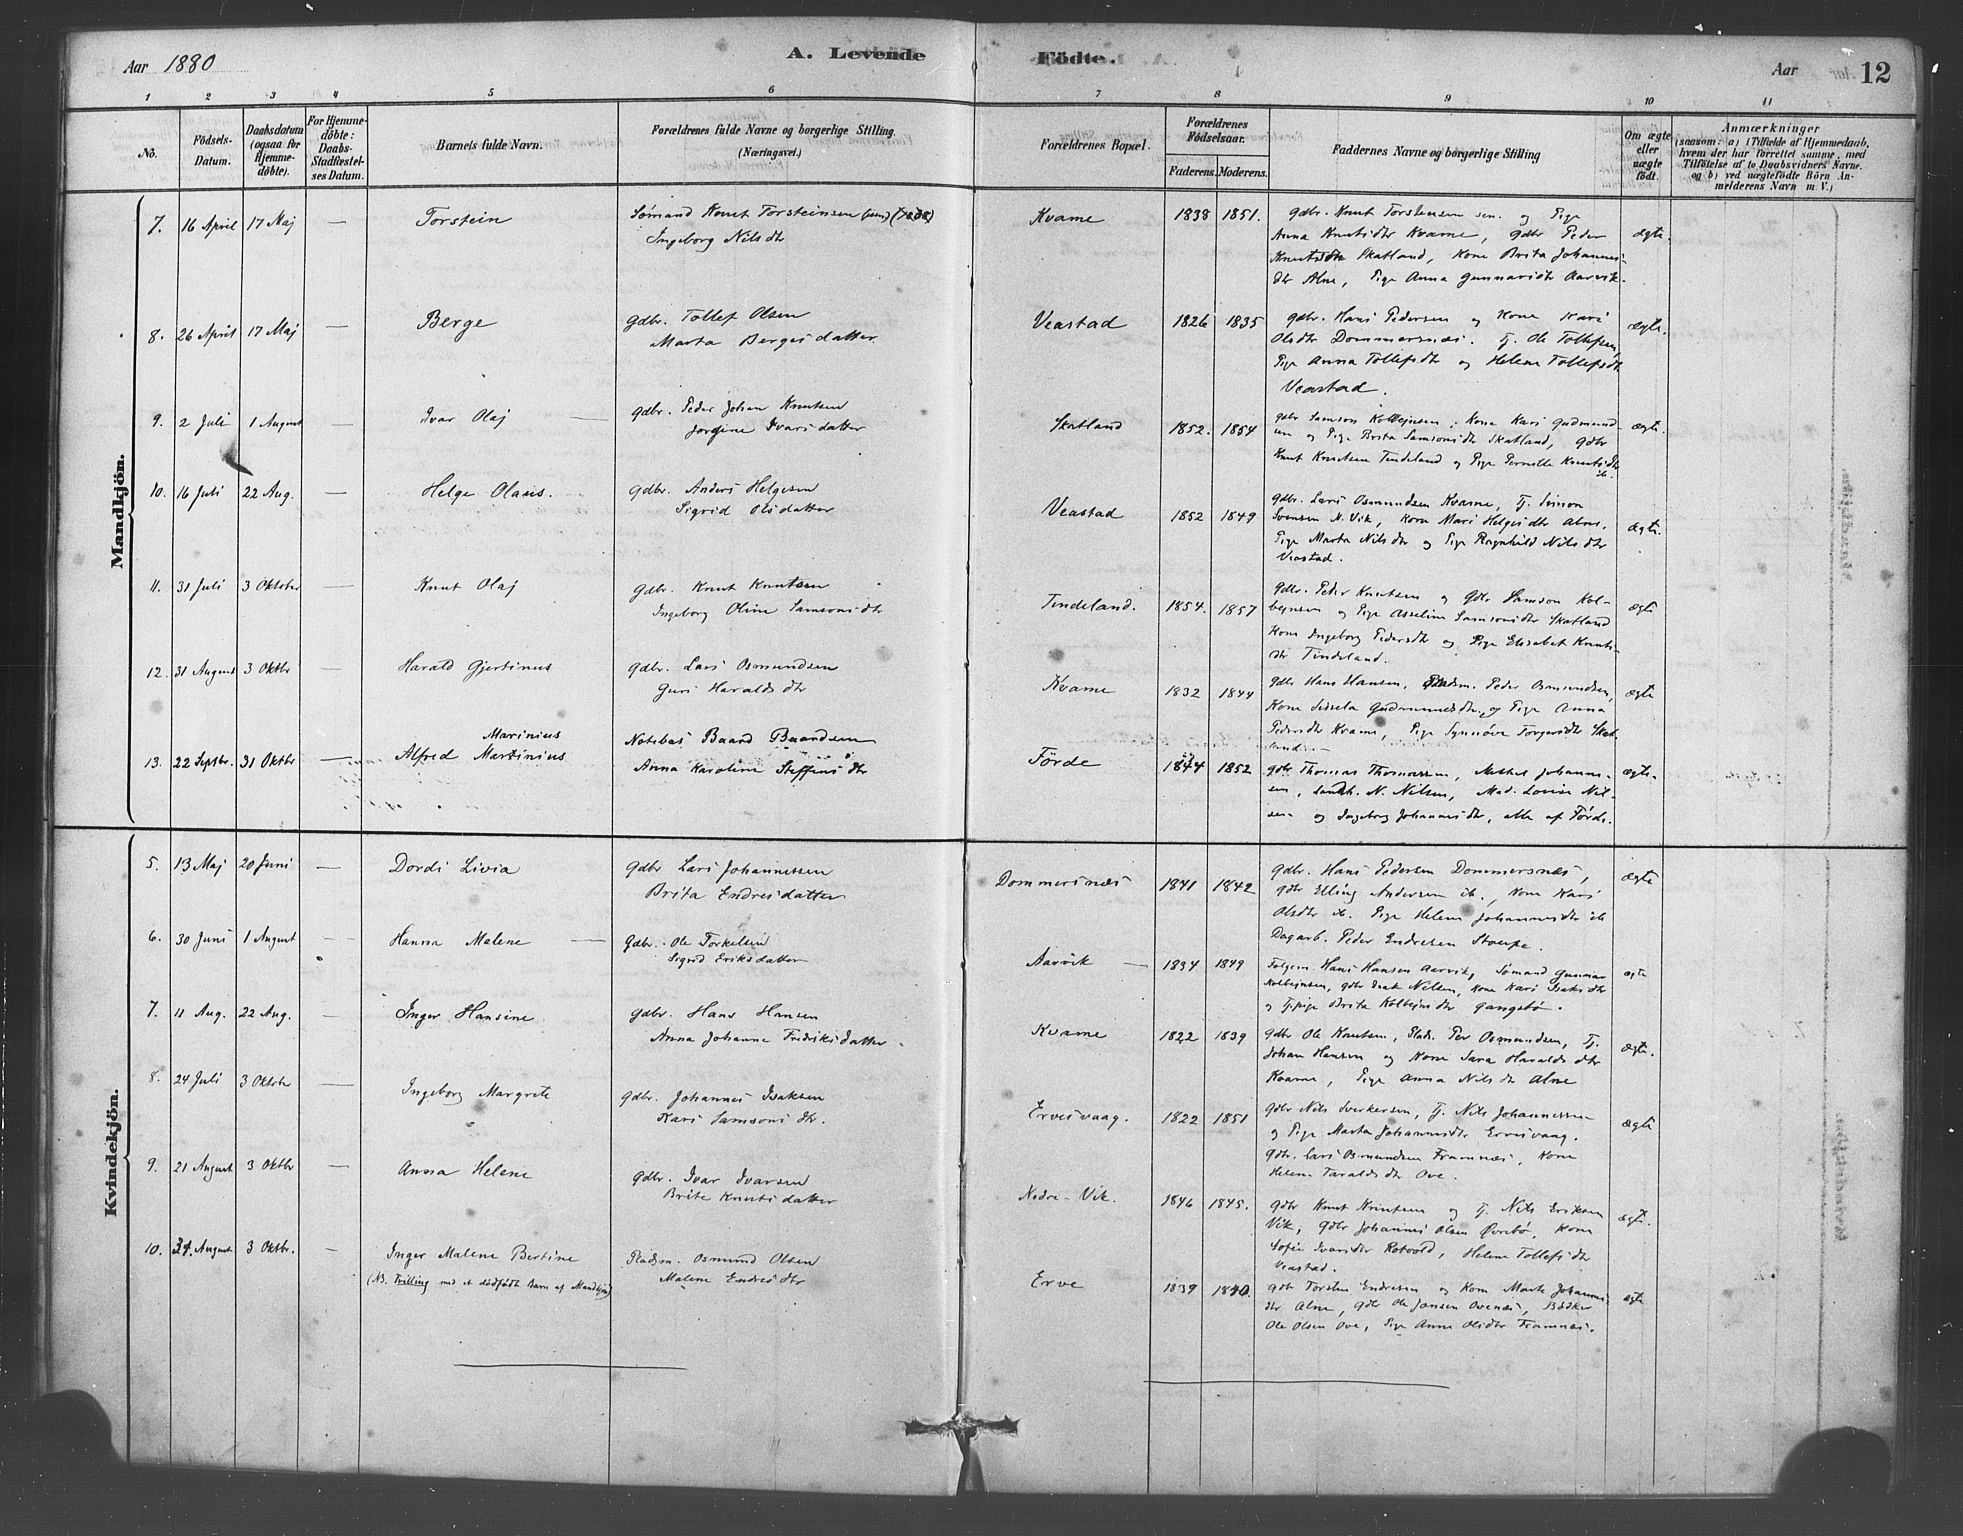 Aar 1880
A. Levende Födte.
Aar
12
1 2 3 4 5 6 7 8 9 10 11
No.
Födsels-
Datum.
Daabsdatum
(ogsaa for
Hjemme-
döbte).
For Hjemme-
döbte:
Daabs-
Stadfæstel-
ses Datum.
Barnets fulde Navn.
Forældrenes fulde Navne og borgerlige Stilling.
(Næringsvei.)
Forældrenes Bopæl.
Forældrenes
Födselsaar.
Faderens. Moderens.
Faddernes Navne og borgerlige Stilling
Om ægte
eller
uægte
födt.
Anmærkninger
(saasom: a) i Tilfælde af Hjemmedaab,
hvem der har forrettet samme, med
Tilföielse af to Daabsvidners Navne.
og b) ved uægtefödte Börn An-
melderens Navn m. V.)
Mandkjön.
7. 16 April 17 Maj — Torstein
Sømand Knut Torsteinsen
Ingeborg Nilsdtr
Kvame 1838 1851.
Gdbr. Knut Torstensen sen. og Pige
Anna Knutsdtr Kvame, Gdbr Peder
Knutsen Skatland, Kone Brita Johannes-
dtr Alne, Pige Anna Gunnarsdtr Aarvik.
ægte.
8. 26 April 17 Maj — Berge
Gdbr. Tollef Olsen
Marta Bergesdatter
Veastad 1826 1835
Gdbr. Hans Pedersen og Kone Kari
Olsdtr Dommersnæs. Tj. Ole Tollefsen,
Pige Anna Tollefsdtr og Helene Tollefsdtr
Veastad.
ægte.
9. 2 Juli 1 August — Ivar Olaj —
Gdbr. Peder Johan Knutsen
Jorgine Ivarsdatter
Skatland 1852. 1854
Gdbr Samson Kolbejnsen, Kone Kari Gudmund-
og Pige Brita Samsonsdtr Skatland, Gdbr
Knut Knutsen Tindeland og Pige Pernille Knutsdtr
ib.
ægte.
10. 16 Juli 22 Aug. — Helge Olaus.
Gdbr. Anders Helgesen
Sigrid Olsdatter
Veastad 1852 1849
Gdbr. Lars Osmundsen Kvame, Tj. Simon
Svensen N. Vik, Kone Mari Helgesdtr Alne.
Pige Marta Nilsdtr og Pige Ragnhild Nilsdtr
Veastad.
ægte.
11. 31 Juli 3 Oktober — Knut Olaj
Gdbr. Knut Knutsen
Ingeborg Oline Samsonsdtr
Tindeland. 1854. 1857
Gdbr. Peter Knutsen og Gdbr Samson Kol-
bejnsen og Pige Asseline Samsonsdtr Skatland
Kone Ingeborg Pedersdtr og Pige Elisabet Knuts-
dtr Tindeland.
ægte
12. 31 August 3 Oktbr — Harald Gjertinus
Gdbr. Lars Osmundsen
Guri Haraldsdtr
Kvame 1832 1844
Gdbr Hans Hansen, Pladsm. Peder Osmundsen,
Kone Sissela Gudmundsdtr, og Pige Anna
Pedersdtr Kvame, Pige Synnöve Torgersdtr Skat-
land.
ægte
13. 22 Septbr. 31 Oktbr — Alfred Martinius
Marinius
Notebas Baard Baardsen
Anna Karoline Steffensdtr
Förde 1844 1852
Gdbr Thomas Thomassen, Mikkel Johannes-
sen, Landh. N. Nilsen, Mad. Lovise Nil-
sen og Ingeborg Johannesdtr, alle af Förde.
ægte.
Kvindekjön.
5. 13 Maj 20 Juni — Dordi Livia
Gdbr Lars Johannessen
Brita Endresdatter
Dommersnæs 1841 1842
Gdbr. Hans Pedersen Dommersnæs,
Gdbr Elling Andersen ib., Kone Kari
Olsdtr ib. Pige Helene Johannesdtr ib
Dagarb. Peder Endresen Stoupe.
ægte
6. 30 Juni 1 August — Hanna Malene —
Gdbr. Ole Torkelsen
Sigrid Eriksdatter
Aarvik — 1834 1849
Folgem. Hans Hansen Aarvik, Sømand Gunnar
Kolbejnsen, Gdbr Isak Nilsen, Kone Kari Isaksdtr
og Tj.pige Brita Kolbejnsdtr Gangstø.
ægte
7. 11 Aug. 22 Aug. — Inger Hansine
Gdbr. Hans Hansen
Anna Johanne Fredriksdatter.
Kvame 1822 1839
Gdbr Ole Knutsen, Plads. Per Osmundsen, Tj.
Johan Hansen og Kone Sara Haraldsdtr
Kvame, Pige Anna Nilsdtr Alne
ægte.
8. 24 Juli 3 Oktober — Ingeborg Margrete
Gdbr. Johannes Isaksen
Kari Samsonsdtr.
Ervesvaag. 1822 1851
Gdbr Nils Sverkersen, Tj. Nils Johannessen
og Pige Marta Johannesdtr Ervesvaag.
Gdbr. Lars Osmundsen Framnæs, Kone
Helene Taraldsdtr Ove.
ægte
9. 21 August 3 Oktbr — Anna Helene
Gdbr. Ivar Ivarsen
Brite Knutsdatter
Nedre-Vik. 1846 1845.
Gdbr Knut Knutsen og Tj. Nils Eriksen
Vik, Gdbr Johannes Olsen Øvrebø, Kone
Sofie Ivarsdtr Rotvold, Helene Tollefsdtr
Veastad.
ægte.
10. 31. August 3 Oktbr. — Inger Malene Bertine
(NB. Tvilling med et dödfödt barn af Mandkjön)
Pladsm. Osmund Olsen
Malene Endresdtr
Erve 1839 1840.
Gdbr Torsten Endresen og Kone Marta Johannes-
dtr Alne, Gdbr Ole Jansen Ovenæs, Bødker
Ole Olsen Ove, Pige Anne Olsdtr Framnæs.
ægte